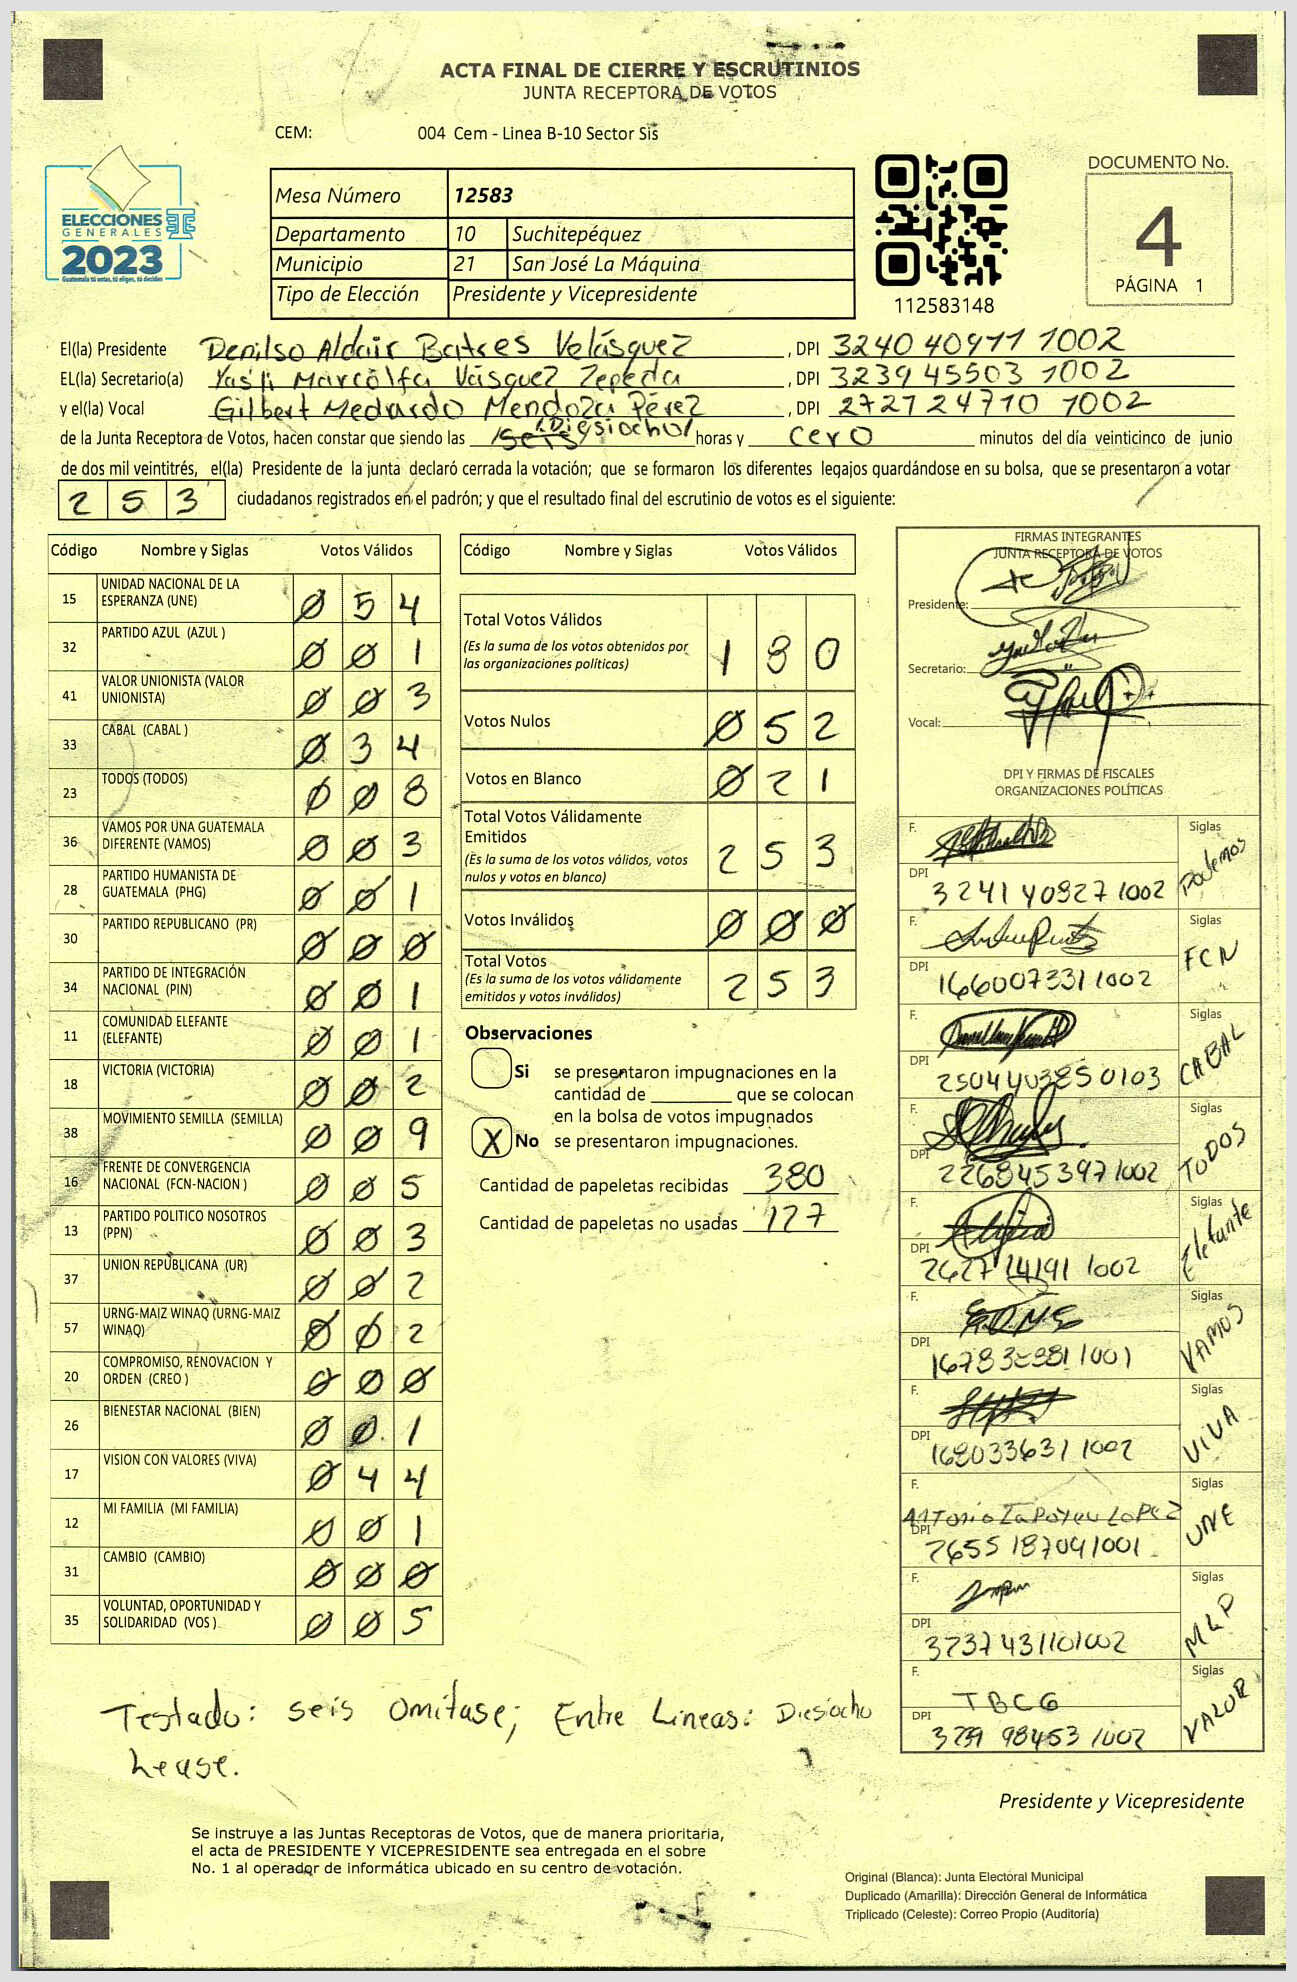 ACTA FINAL DE CIERRE Y ESCRUTINIOS
JUNTA RECEPTORA DE VOTOS
CEM: 004 Cem - Linea B-10 Sector Sis
ELECCIONES
GENERALES
2023
Guatemala tú eres, tú eliges, tú decides
Mesa Número 12583
Departamento 10 Suchitepéquez
Municipio 21 San José La Máquina
Tipo de Elección Presidente y Vicepresidente
112583148
DOCUMENTO No.
4
PÁGINA 1
El(la) Presidente Denilso Aldair Batres Velásquez, DPI 3240 40911 1002
EL(la) Secretario(a) Yasli Marcolfa Vásquez Zepeda, DPI 3239 45503 1002
y el(la) Vocal Gilbert Medardo Mendoza Pérez, DPI 2727 24710 1002
de la Junta Receptora de Votos, hacen constar que siendo las seis Diesiocho horas y cero minutos del día veinticinco de junio
de dos mil veintitrés, el(la) Presidente de la junta declaró cerrada la votación; que se formaron los diferentes legajos guardándose en su bolsa, que se presentaron a votar
253 ciudadanos registrados en el padrón; y que el resultado final del escrutinio de votos es el siguiente:
Código Nombre y Siglas Votos Válidos
15 UNIDAD NACIONAL DE LA ESPERANZA (UNE) 054
32 PARTIDO AZUL (AZUL ) 001
41 VALOR UNIONISTA (VALOR UNIONISTA) 003
33 CABAL (CABAL ) 034
23 TODOS (TODOS) 008
36 VAMOS POR UNA GUATEMALA DIFERENTE (VAMOS) 003
28 PARTIDO HUMANISTA DE GUATEMALA (PHG) 001
30 PARTIDO REPUBLICANO (PR) 000
34 PARTIDO DE INTEGRACIÓN NACIONAL (PIN) 001
11 COMUNIDAD ELEFANTE (ELEFANTE) 001
18 VICTORIA (VICTORIA) 002
38 MOVIMIENTO SEMILLA (SEMILLA) 009
16 FRENTE DE CONVERGENCIA NACIONAL (FCN-NACION ) 005
13 PARTIDO POLITICO NOSOTROS (PPN) 003
37 UNION REPUBLICANA (UR) 002
57 URNG-MAIZ WINAQ (URNG-MAIZ WINAQ) 002
20 COMPROMISO, RENOVACION Y ORDEN (CREO ) 000
26 BIENESTAR NACIONAL (BIEN) 001
17 VISION CON VALORES (VIVA) 044
12 MI FAMILIA (MI FAMILIA) 001
31 CAMBIO (CAMBIO) 000
35 VOLUNTAD, OPORTUNIDAD Y SOLIDARIDAD (VOS ) 005
Código Nombre y Siglas Votos Válidos
Total Votos Válidos 180
(Es la suma de los votos obtenidos por
las organizaciones políticas)
Votos Nulos 052
Votos en Blanco 021
Total Votos Válidamente
Emitidos 253
(Es la suma de los votos válidos, votos
nulos y votos en blanco)
Votos Inválidos 000
Total Votos 253
(Es la suma de los votos válidamente
emitidos y votos inválidos)
Observaciones
Si se presentaron impugnaciones en la
cantidad de ________ que se colocan
en la bolsa de votos impugnados
X No se presentaron impugnaciones.
Cantidad de papeletas recibidas 380
Cantidad de papeletas no usadas 127
FIRMAS INTEGRANTES
JUNTA RECEPTORA DE VOTOS
Presidente:
Secretario:
Vocal:
DPI Y FIRMAS DE FISCALES
ORGANIZACIONES POLÍTICAS
F. Siglas Podemos
DPI 3241 40827 1002
F. Siglas FCN
DPI 166007331 1002
F. Siglas CABAL
DPI 2504403850103
F. Siglas TODOS
DPI 226845397 1002
F. Siglas Elefante
DPI 2627 14191 1002
F. Siglas VAMOS
DPI
F. Siglas VIVA
DPI 168033631 1002
F. Antonio Lopez Siglas UNE
DPI 2655 18704 1001
F. Siglas MLP
DPI 3237431101002
F. TBCG Siglas VALOR
DPI 3239 98453 1002
Testado: seis Omitase; Entre Lineas: Diesiocho
Lease.
Presidente y Vicepresidente
Se instruye a las Juntas Receptoras de Votos, que de manera prioritaria,
el acta de PRESIDENTE Y VICEPRESIDENTE sea entregada en el sobre
No. 1 al operador de informática ubicado en su centro de votación.
Original (Blanca): Junta Electoral Municipal
Duplicado (Amarilla): Dirección General de Informática
Triplicado (Celeste): Correo Propio (Auditoría)